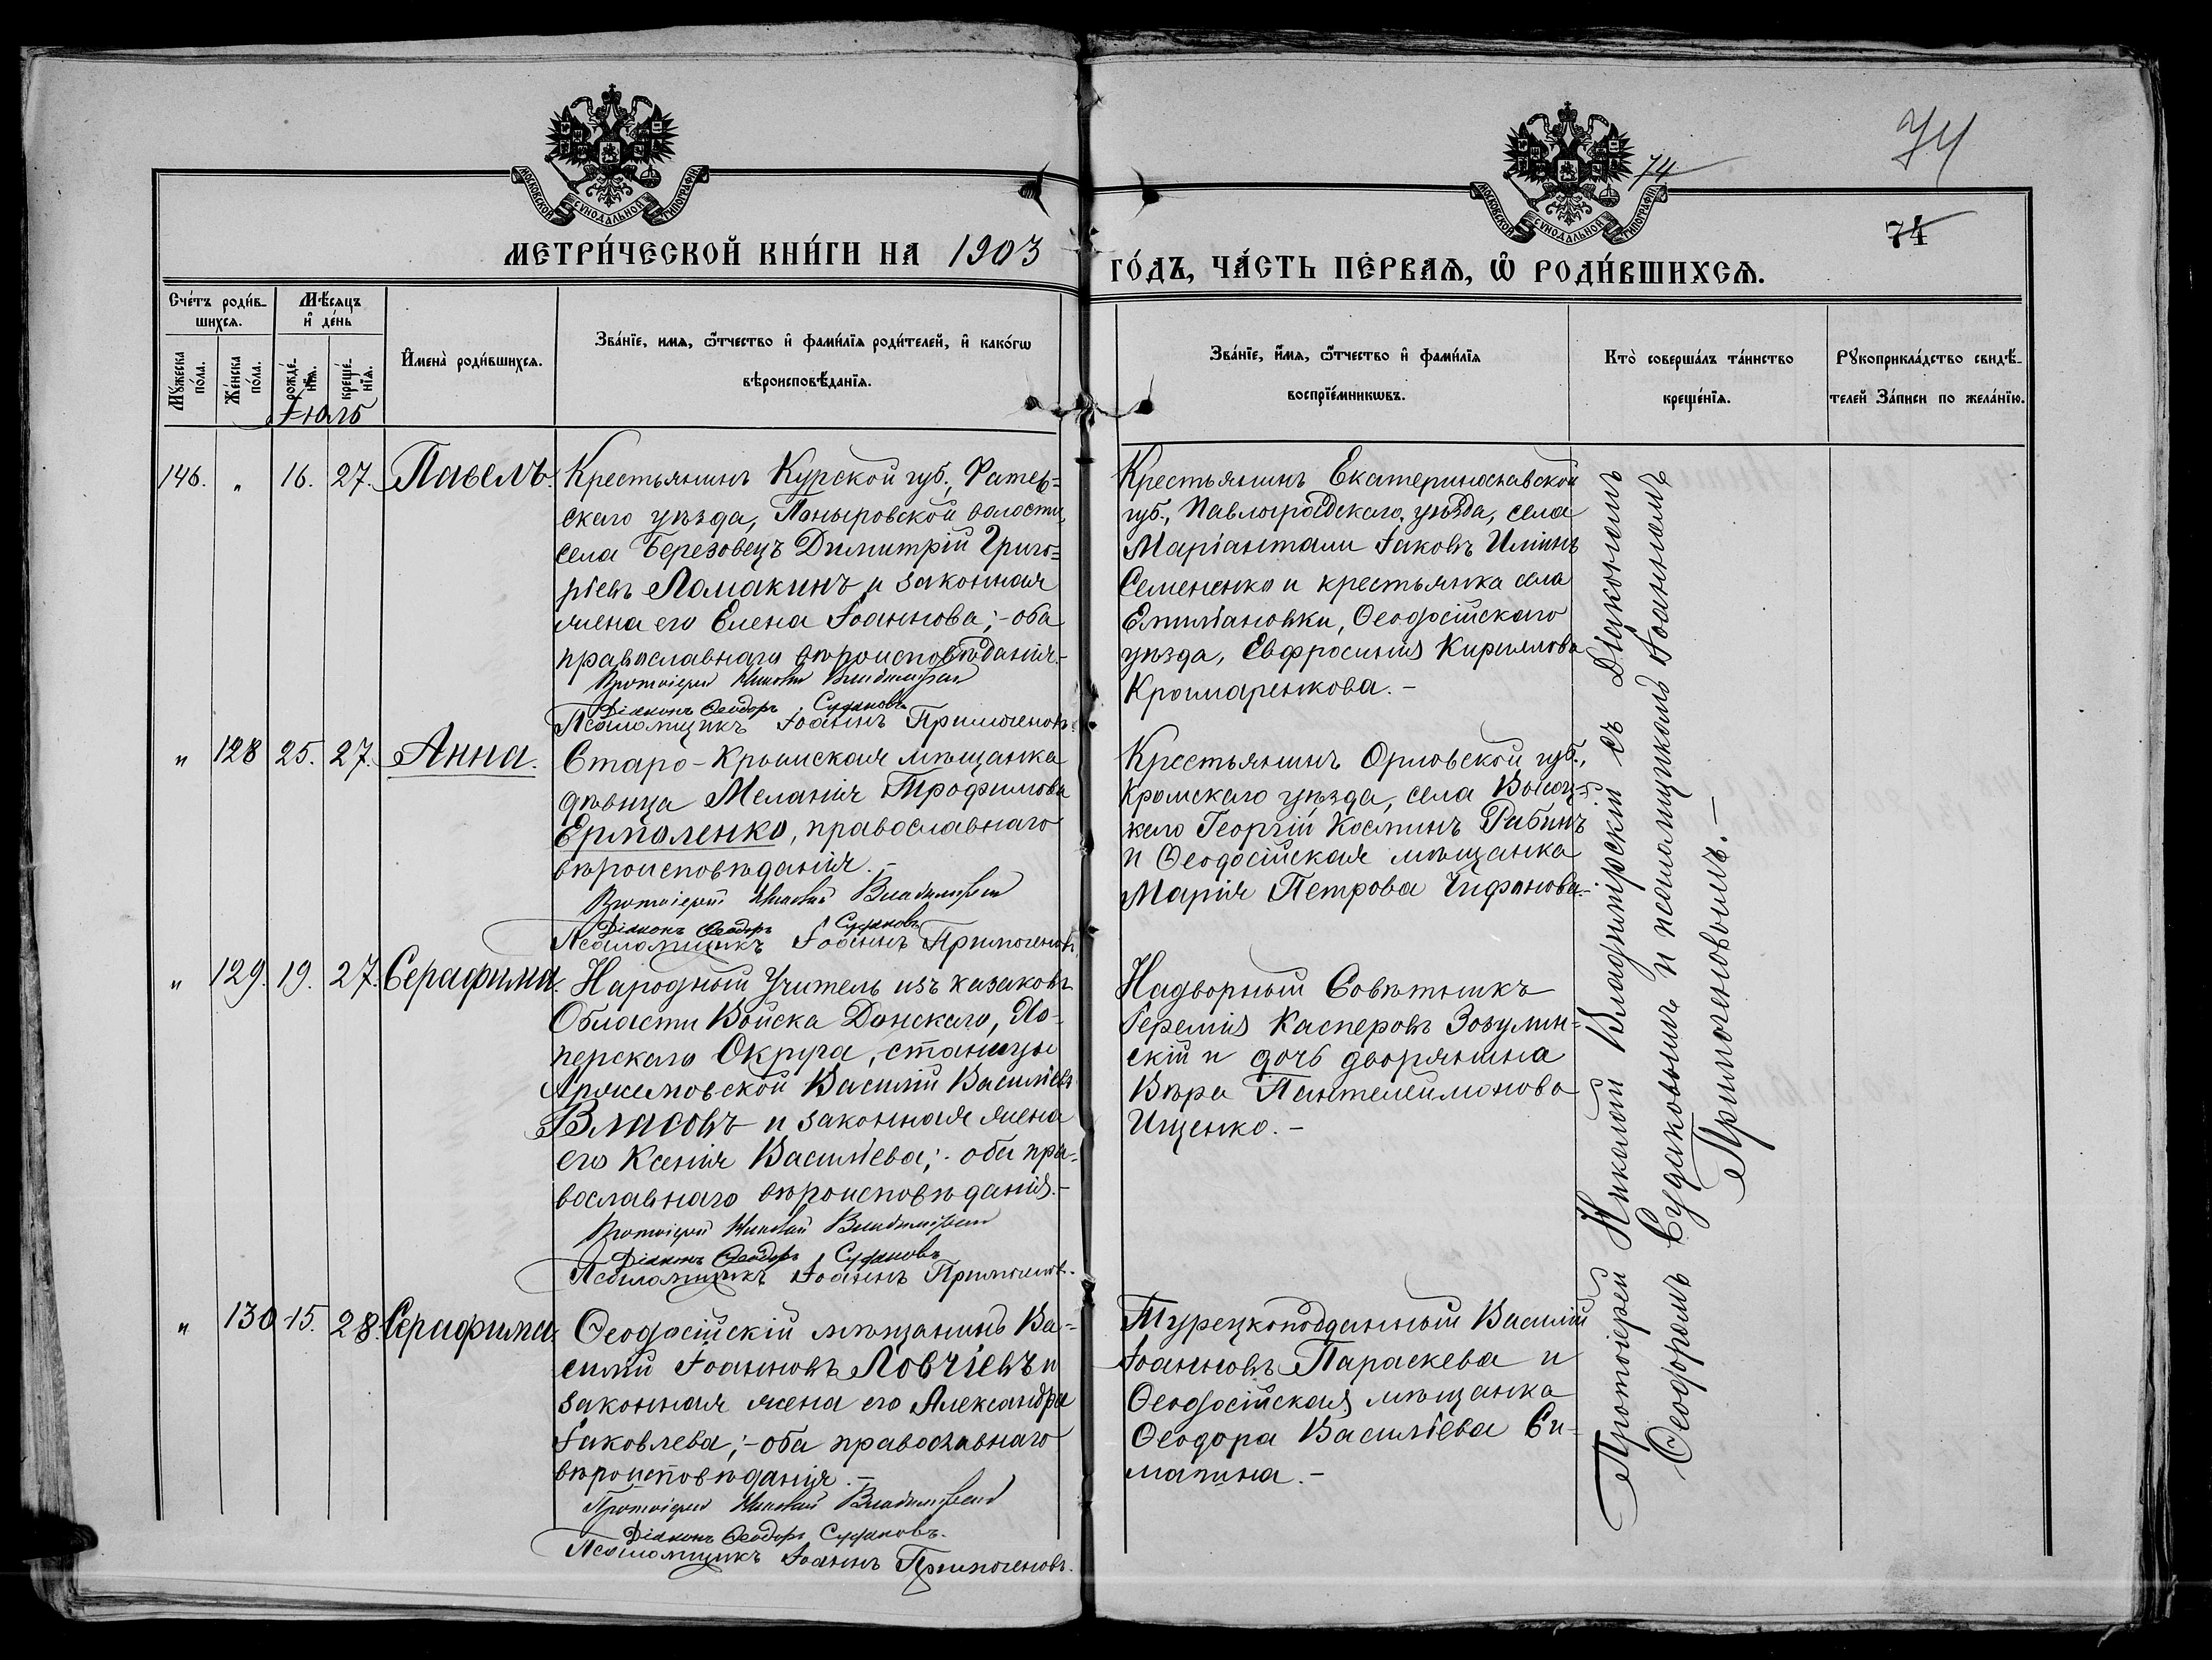 74
74
74
МОСКОВСКОЙ СѴНОДАЛЬНОЙ ТИПОГРАФІИ
МОСКОВСКОЙ СѴНОДАЛЬНОЙ ТИПОГРАФІИ
МЕТРИ́ЧЕСКОЙ КНИ́ГИ НА 1903
ГО́ДЪ, ЧА́СТЬ ПЕ́РВАѦ, Ѡ РОДИ́ВШИХСѦ.
Сче́тъ роди́в-
шихсѧ.
Мѣ́сяцъ
и҆ де́нь
Мꙋжеска по́ла.
Же́нска по́ла.
рожде́-нїѧ.
креще́-нїѧ.
И҆мена̀ роди́вшихсѧ.
Зва́нїе, имѧ, ѿтчество и҆ фами́лїѧ роди́телей, и҆ како́гѡ
вѣроисповѣ́данїѧ.
Зва́нїе, и҆́мѧ, ѿтчество и҆ фами́лїѧ
воспрїе́мникѡвъ.
Кто̀ соверша́лъ та́инство
креще́нїѧ.
Рꙋкоприкла́дство свидѣ́-
телей За́писи по жела́нїю.
Іюль
146. " 16. 27. Павелъ.
Крестьянинъ Курской губ., Фатеж=
скаго уѣзда, Поныровской волости,
села Березовецъ Димитрій Григо=
ріевъ Ломакинъ и законная
жена его Елена Іоаннова;- оба
православнаго вѣроисповѣданія.-
Протоіерей Николай Владимірскій
Діаконъ Ѳеодоръ Судаковъ
Псаломщикъ Іоаннъ Примогеновъ.
Крестьянинъ Екатеринославской
губ., Павлоградскаго уѣзда, села
Маріантали Іаковъ Иліинъ
Семененко и крестьянка села
Ѳеодосійскаго
уѣзда, Евфросинія Кириллова
Кромаренкова.-
" 128 25. 27. Анна.
Старо-Крымская мѣщанка
дѣвица Меланія Трофимова
Ермоленко, православнаго
вѣроисповѣданія.-
Протоіерей Николай Владимірскій
Діаконъ Ѳеодоръ Судаковъ
Псаломщикъ Іоаннъ Примогеновъ
Крестьянинъ Орловской губ.,
Кромскаго уѣзда, села Высоц=
каго Георгій Косминъ Рабинъ
и Ѳеодосійская мѣщанка
Марія Петрова
" 129. 19. 27. Серафима.
Народный Учитель изъ казаковъ
Области Войска Донскаго, Хо-
перскаго Округа, станицы
Аржановской Василій Васильевъ
Власовъ и законная жена
его Ксенія Васильева;- оба пра-
вославнаго вѣроисповѣданія.-
Протоіерей Николай Владимірскій
Діаконъ Ѳеодоръ Судаковъ
Псаломщикъ Іоаннъ Примогеновъ.
Надворный Совѣтникъ
Іеремія Касперовъ Зозулин=
скій и дочь дворянина
Вѣра Пантелеимонова
Ищенко.-
" 130 15. 28. Серафима
Ѳеодосійскій мѣщанинъ Ва-
силій Іоанновъ Ловчіевъ и
законная жена его Александра
Іаковлева;- оба православнаго
вѣроисповѣданія.-
Протоіерей Николай Владимірскій
Діаконъ Ѳеодоръ Судаковъ.
Псаломщикъ Іоаннъ Примогеновъ.
Турецкоподданный Василій
Іоанновъ Параскева и
Ѳеодосійская мѣщанка
Ѳеодора Васильева Си-
мапина.-
Протоіерей Николай Владимірскій съ Діакономъ
Ѳеодоромъ Судаковымъ и псаломщикомъ Іоанномъ
Примогеновымъ.-